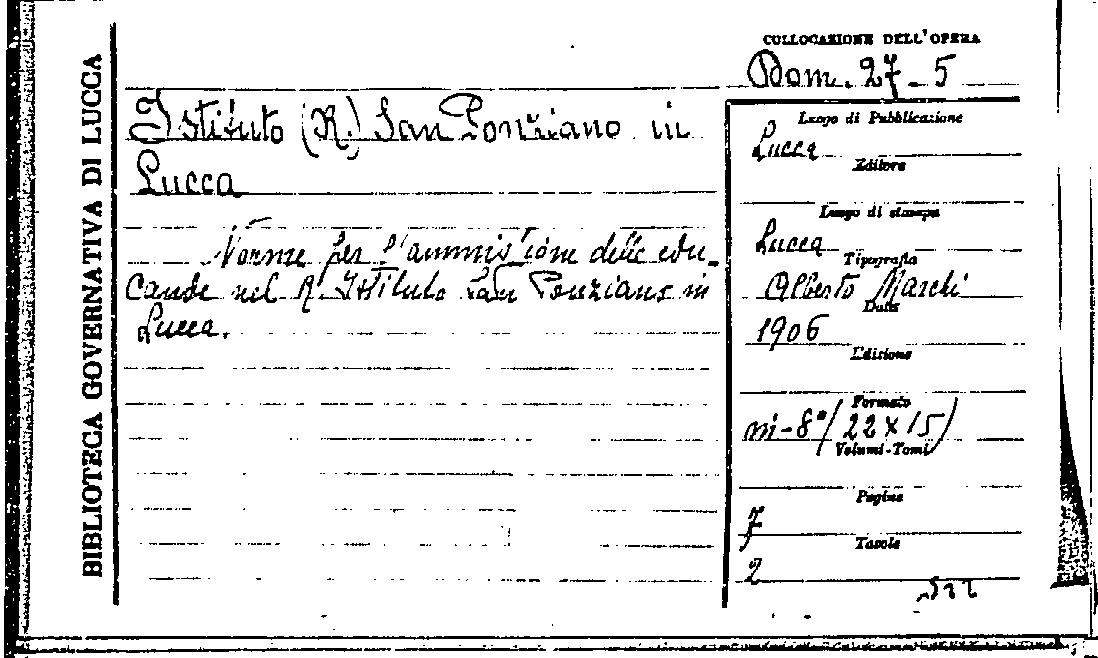 BIBLIOTECA GOVERNATIVA DI LUCCA
COLLOCAZIONE DELL'OPERA
Dom. 27-5
Istituto (R.) San Ponziano in
Lucca
Norme per l'ammissione delle edu-
cande nel R. Istituto San Ponziano in
Lucca.
Luogo di Pubblicazione
Lucca
Editore
Luogo di stampa
Lucca
Tipografia
Alberto Marchi
Data
1906
Edizione
Formato
in-8° (22 x 15)
Volumi-Tomi
Pagine
7
Tavole
2